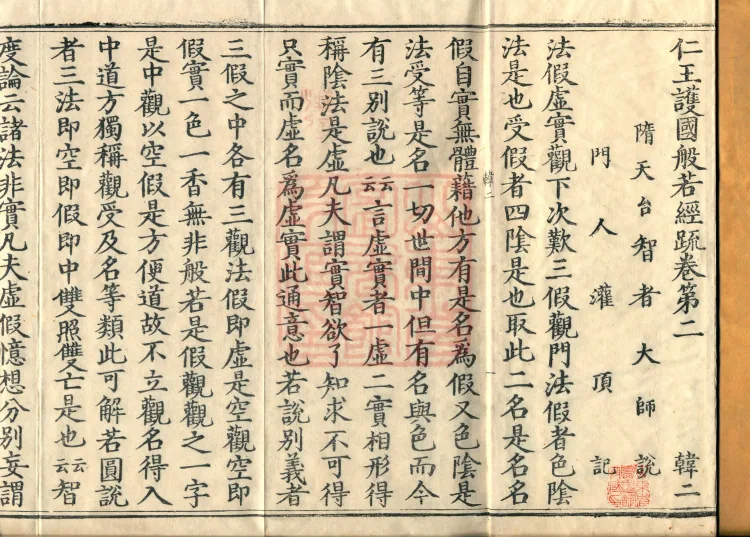 仁王護國般若經疏卷第二　韓二
隋天台智者大師說
門人灌頂記
法假虛實觀下次歎三假觀門法假者色陰
法是也受假者四陰是也取此二名是名名
韓二
假自實無體藉他方有是名為假又色陰是
法受等是名一切世間中但有名與色而今
有三別說也云云言虛實者一虛二實相形得
稱陰法是虛凡夫謂實智欲了知求不可得
只實而虛名為虛實此通意也若說別義者
三假之中各有三觀法假即虛是空觀空即
假實一色一香無非般若是假觀觀之一字
是中觀以空假是方便道故不立觀名得入
中道方獨稱觀受及名等類此可解若圓說
者三法即空即假即中雙照雙亡是也云云智
度論云諸法非實凡夫虛假憶想分別妄謂